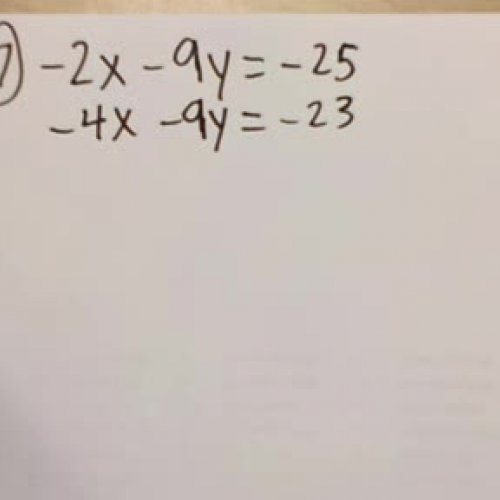 -2x - 9y = -25
-4x - 9y = -23